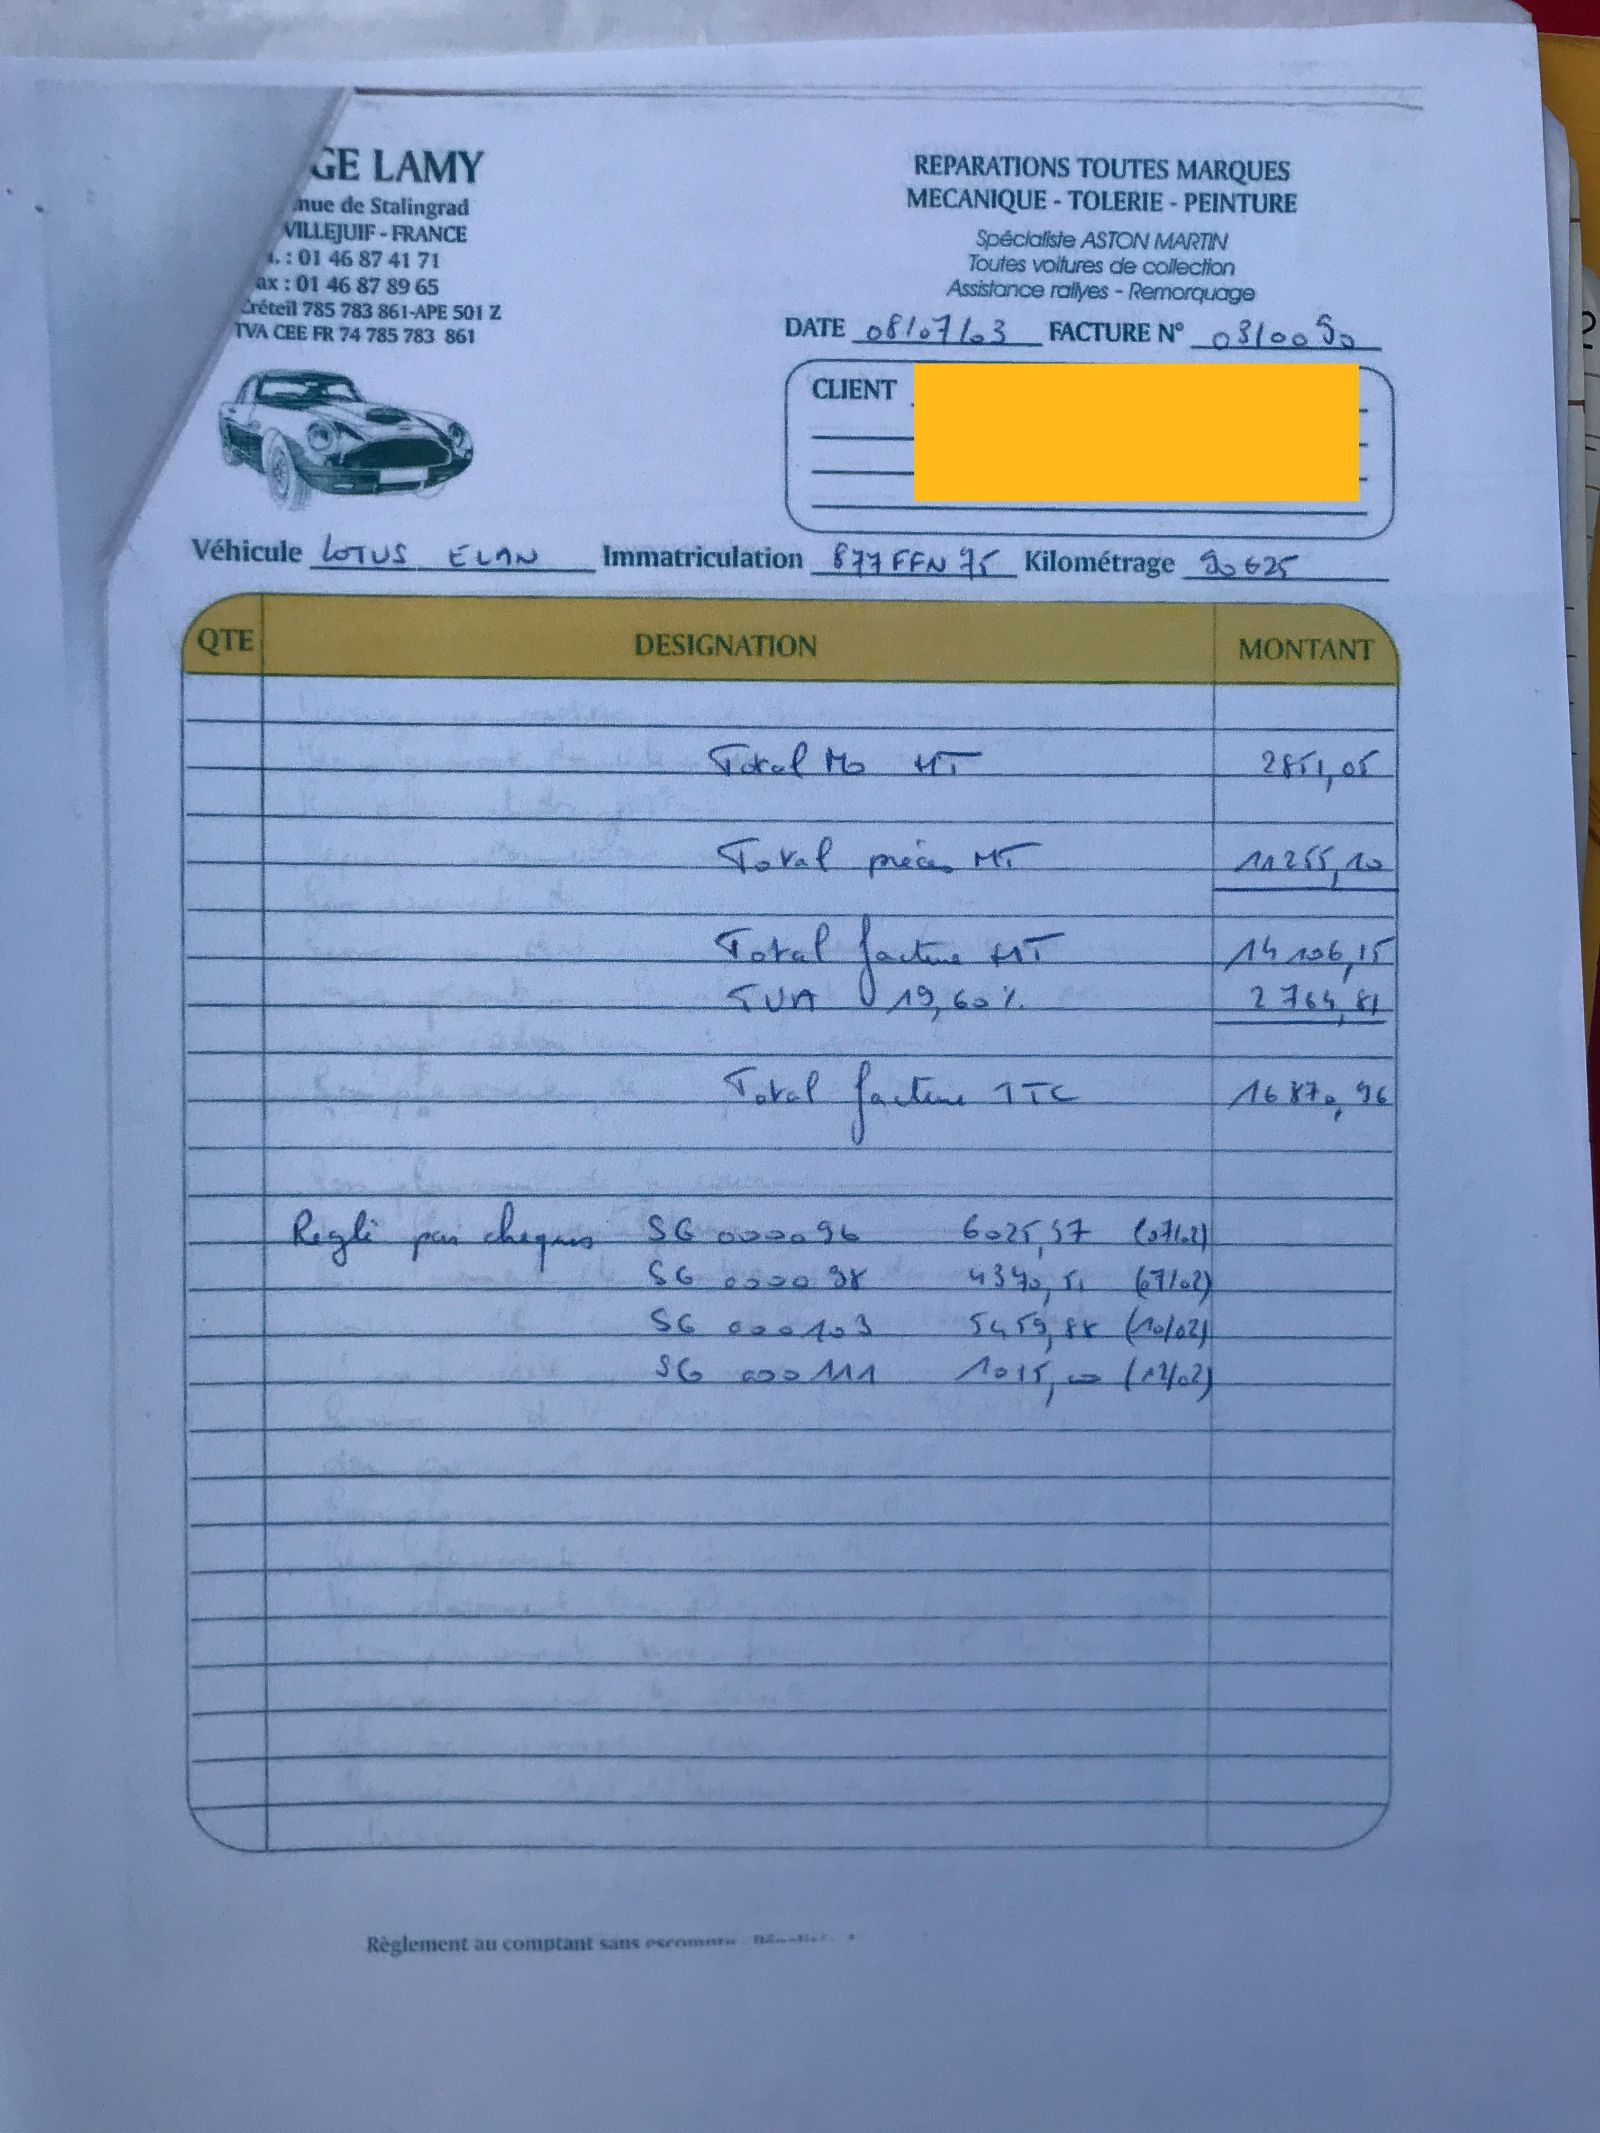 GE LAMY
nue de Stalingrad
VILLEJUIF - FRANCE
. : 01 46 87 41 71
ax : 01 46 87 89 65
Créteil 785 783 861-APE 501 Z
TVA CEE FR 74 785 783 861
REPARATIONS TOUTES MARQUES
MECANIQUE - TOLERIE - PEINTURE
Spécialiste ASTON MARTIN
Toutes voitures de collection
Assistance rallyes - Remorquage
DATE 08/07/03 FACTURE N° 03/0090
CLIENT
Véhicule LOTUS ELAN Immatriculation 877 FFN 75 Kilométrage 90625
QTE DESIGNATION MONTANT
Total Mo HT 2851,05
Total pièces HT 11255,10
Total facture HT 14106,15
TVA 19,60% 2764,81
Total facture TTC 16870,96
Reglé par cheques SG 000096 6025,57 (07/02)
SG 000098 4370,51 (07/02)
SG 000103 5459,88 (10/02)
SG 000111 1015,00 (12/02)
Règlement au comptant sans escompte